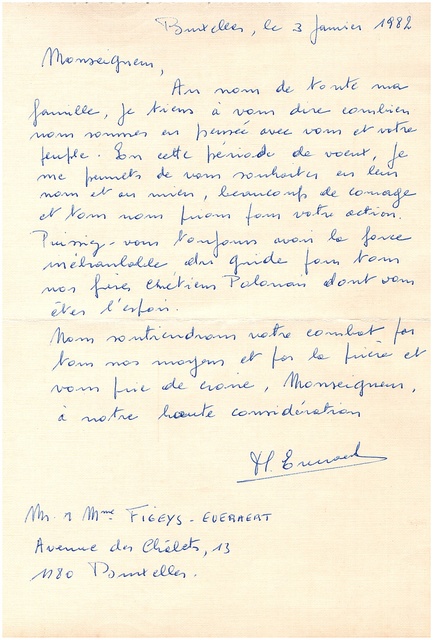 Bruxelles, le 3 Janvier 1982
Monseigneur,
Au nom de toute ma
famille, je tiens à vous dire combien
nous sommes en pensée avec vous et votre
peuple. En cette période de voeux, je
me permets de vous souhaiter en leur
nom et au mien, beaucoup de courage
et tous nous prions pour votre action.
Puissiez-vous toujours avoir la force
inébranlable du guide pour tous
nos frères chrétiens Polonais dont vous
êtes l'espoir.
Nous soutiendrons votre combat par
tous nos moyens et par la prière et
vous prie de croire, Monseigneur,
à notre haute considération
Mr. & Mme FIGEYS-EVERAERT
Avenue des Châlets, 13
1180 Bruxelles.